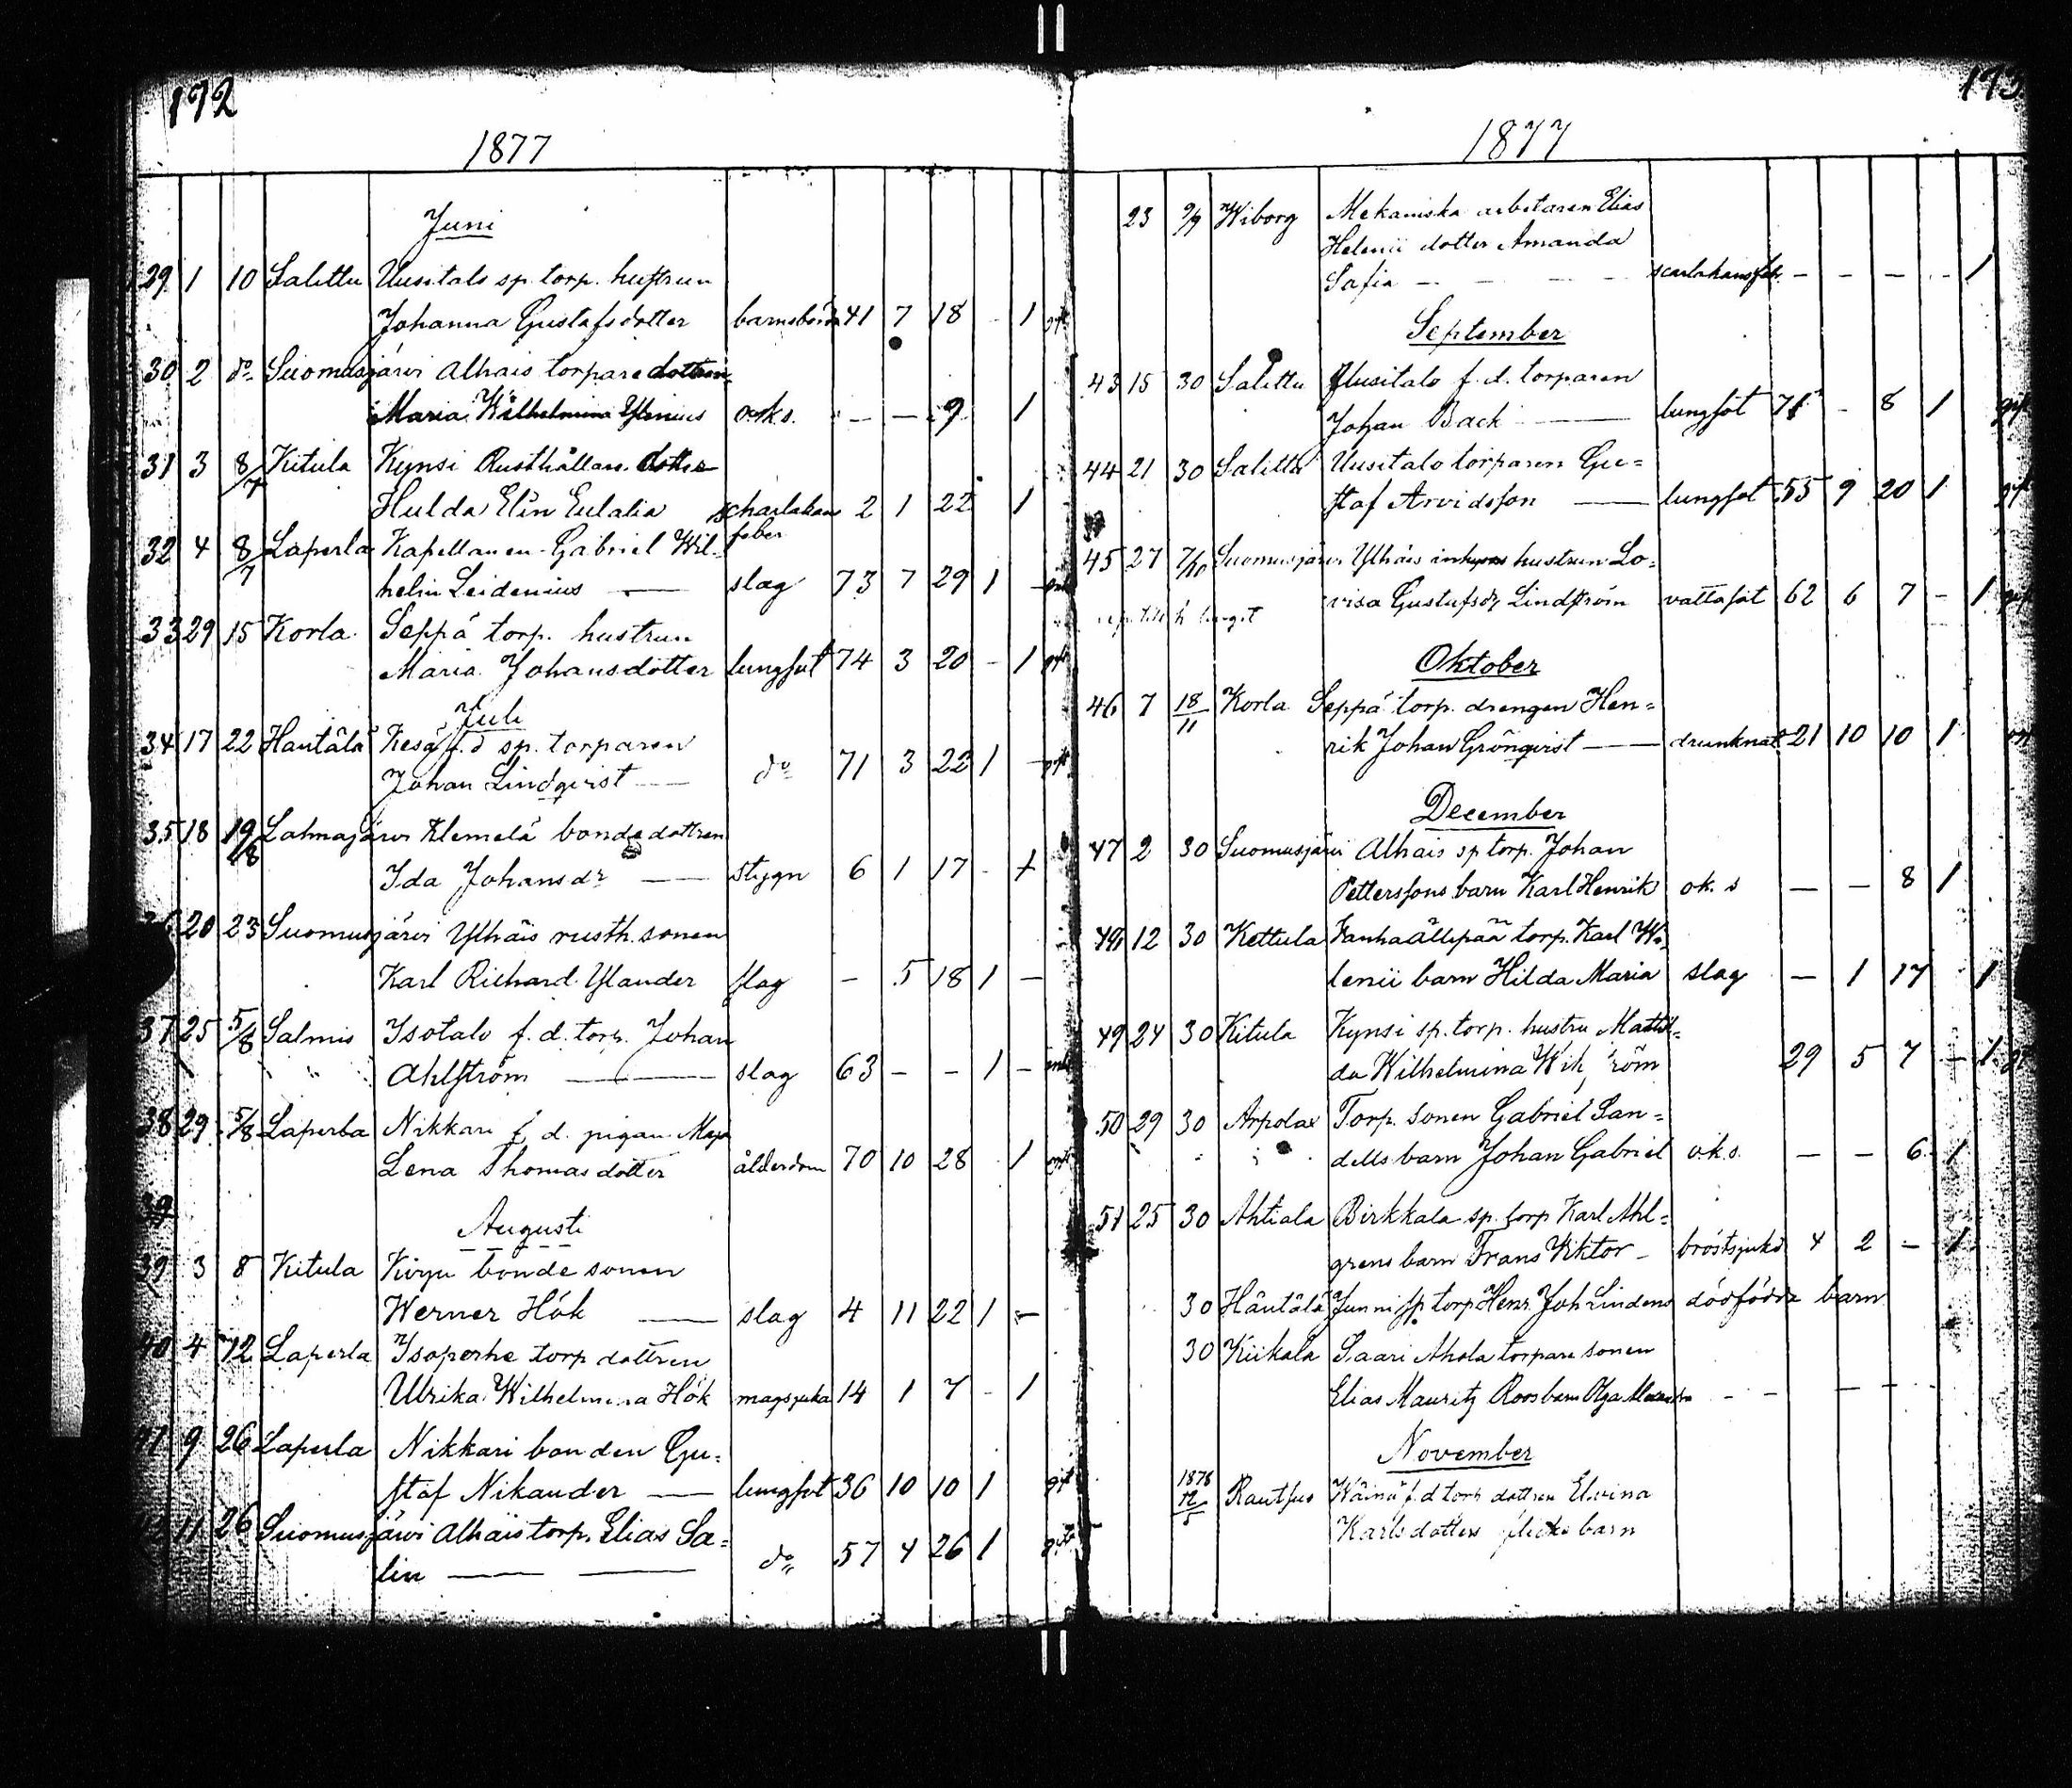 172
1877
Juni
29 1 10 Salittu Uusitalo sp. torp. hustrun
Johanna Gustafsdotter barnsbörd 41 7 18 - 1 gift
30 2 do Suomusjärvi Alhais torpare dottren
Maria Wilhelmina Ylenius o.k.s. - - 9 1
31 3 8/7 Kitula Kynsi Rusthållare dotter
Hulda Elin Eulalia scharlakan 2 1 22 1
feber
32 4 8/7 Laperla Kapellanen Gabriel Wil-
helm Leidenius — slag 73 7 29 1 -
33 29 15 Korla Seppä torp. hustrun
Maria Johansdotter lungsot 74 3 20 - 1 gift
Juli
34 17 22 Hantälä Kesä f.d sp. torparen
Johan Lindqvist — do 71 3 22 1 - gift
35 18 19/8 Lahnajärvi Klemelä bonde dottren
Ida Johansdr — stygn 6 1 17 - 1
36 20 23 Suomusjärvi Ylhäis rusth. sonen
Karl Richard Ylander slag - 5 18 1 -
37 25 5/8 Salmis Isotalo f.d. torp. Johan
Ahlström — slag 63 - - 1 -
38 29 5/8 Laperla Nikkari f.d. pigan Maja
Lena Thomasdotter ålderdom 70 10 28 1
39
Augusti
39 3 8 Kitula Köyu bonde sonen
Werner Hök — slag 4 11 22 1 -
40 4 12 Laperla Isoperhe torp dottren
Ulrika Wilhelmina Hök magsjuka 14 1 7 - 1
41 9 26 Laperla Nikkari bonden Gu-
staf Nikander — lungsot 36 10 10 1 gift
11 26 Suomusjärvi Alhais torp. Elias Sa-
lin — — do 57 4 26 1 gift
173
1877
23 9/9 Wiborg Mekaniska arbetaren Elias
Helenii dotter Amanda
Sofia - - - scarlakansfeb. - - - - 1
September
43 15 30 Salittu Uusitalo f.d. torparen
Johan Back — lungsot 71 - 8 1 gift
44 21 30 Salittu Uusitalo torparen Gu-
staf Arvidsson — lungsot 55 9 20 1 gift
45 27 7/10 Suomusjärvi Ylhäis inhyses hustrun Lo-
visa Gustafsdr Lindström vattusot 62 6 7 - 1 gift
Oktober
46 7 18/11 Korla Seppä torp. drengen Hen-
rik Johan Grönqvist — drunknat 21 10 10 1
December
47 2 30 Suomusjärvi Alhais sp torp. Johan
Petterssons barn Karl Henrik ok. s - - 8 1
48 12 30 Kettula Vanhaällipää torp. Karl W.
lenii barn Hilda Maria slag - 1 17 - 1
49 24 30 Kitula Kynsi sp. torp. hustru Mathil-
da Wilhelmina 29 5 7 - 1 gift
50 29 30 Arpolax Torp. sonen Gabriel San-
dells barn Johan Gabriel o.k.s. - - 6 1
51 25 30 Ahtiala Birkkala sp. torp Karl Ahl-
grens barn Frans Viktor - bröstsjukd 4 2 - 1
30 Häntälä Junni sp torp Henr. Joh Lindens dödfödda barn
30 Kiikala Saari Ahola torpare sonen
Elias Mauritz Roos barn Olga Alexandra - - - -
November
1878 Rautsuo Wäinö f.d torp dottren Elvina
Karlsdotters flicko barn